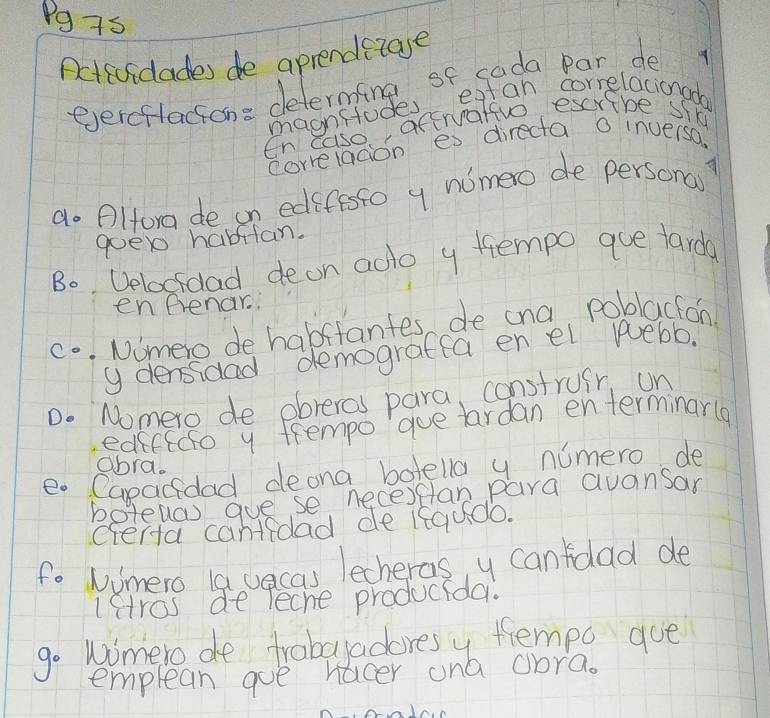 Pg 75
Actividades de aprendizaje
ejercitacion: determina si cada par de
magnitudes estan correlacionada
En caso afirmativo escribe si la
correlación es directa o inversa.
a. Altura de un edificio y número de personas
que lo habitan.
B. Velocidad de un auto y tiempo que tarda
en frenar.
c. Número de habitantes de una población
y densidad demografica en el pueblo.
D. Numero de obreros para construir un
edificio y tiempo que tardan en terminar la
obra.
e. Capacidad de una botella y número de
botellas que se necesitan para avansar
cierta cantidad de liquido.
f. Número la vacas lecheras y cantidad de
litros de leche producida.
g. Número de trabajadores y tiempo que
emplean que hacer una obra.